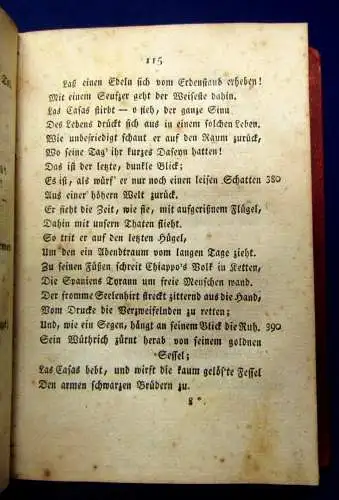 115
Laß einen Edeln sich vom Erdenstaub erheben!
Mit einem Seufzer geht der Weiseste dahin.
Las Casas stirbt — o sieh, der ganze Sinn
Des Lebens drückt sich aus in einem solchen Leben.
Wie unbefriedigt schaut er auf den Raum zurück,
Wo seine Tag' ihr kurzes Daseyn hatten!
Das ist der letzte, dunkle Blick;
Es ist, als würf' er nur noch einen leisen Schatten 380
Aus einer höhern Welt zurück.
Er sieht die Zeit, wie sie, mit aufgerißnem Flügel,
Dahin mit unsern Thaten flieht.
So trit er auf den letzten Hügel,
Um den ein Abendtraum vom langen Tage zieht.
Zu seinen Füßen schreit Chiappo's Volk in Ketten,
Die Spaniens Tyrann um freie Menschen wand.
Der fromme Seelenhirt streckt zitternd aus die Hand,
Vom Drucke die Verzweifelnden zu retten;
Und, wie ein Segen, hängt an seinem Blick die Ruh. 390
Sein Wüthrich zürnt herab von seinem goldnen
Sessel;
Las Casas bebt, und wirft die kaum gelös'te Fessel
Den armen schwarzen Brüdern zu.
8 *